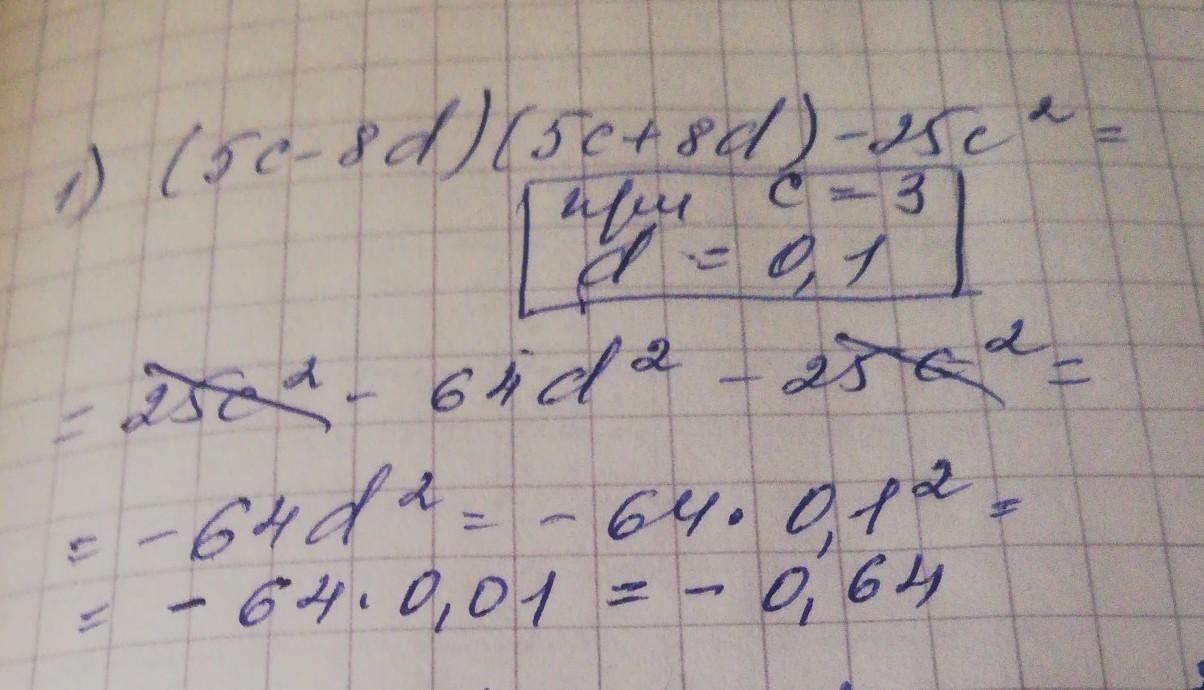 1) (5c-8d)(5c+8d)-25c²=
при c=3
d=0,1
=25c²-64d²-25c²=
=-64d²=-64·0,1²=
=-64·0,01=-0,64